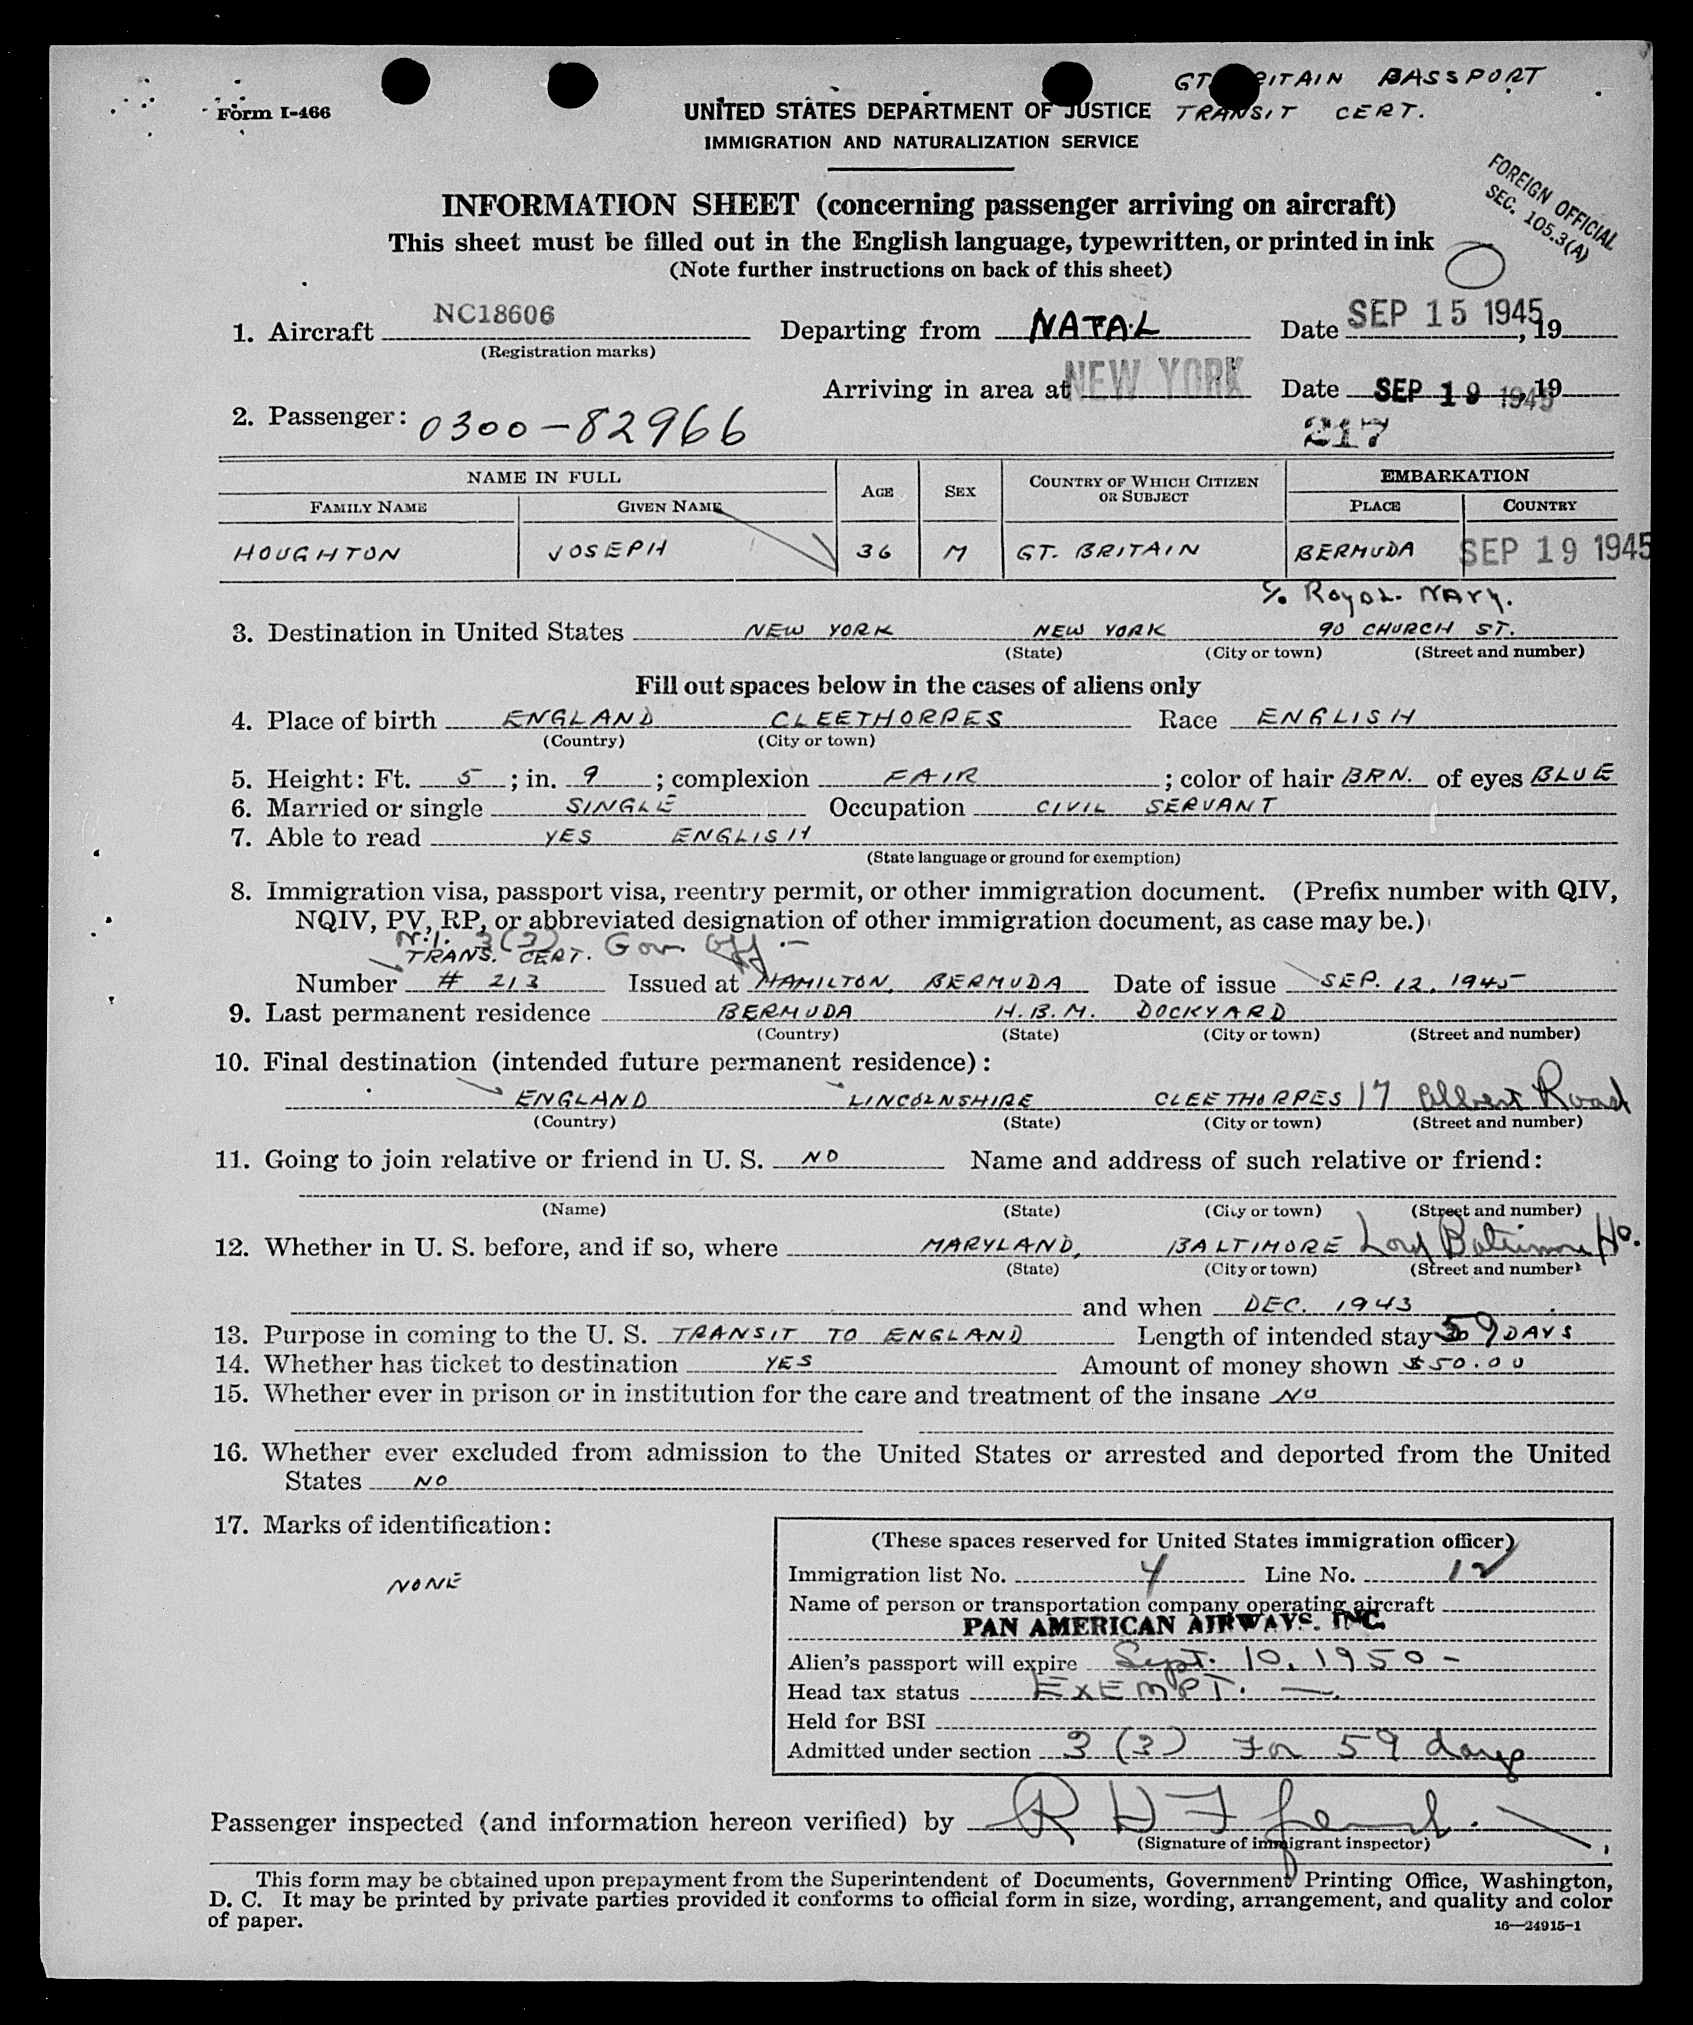 GT. BRITAIN PASSPORT
TRANSIT CERT.
Form I-466
UNITED STATES DEPARTMENT OF JUSTICE
IMMIGRATION AND NATURALIZATION SERVICE
FOREIGN OFFICIAL
SEC. 105.3(A)
INFORMATION SHEET (concerning passenger arriving on aircraft)
This sheet must be filled out in the English language, typewritten, or printed in ink
(Note further instructions on back of this sheet)
1. Aircraft NC18606 Departing from NATAL Date SEP 15 1945, 19
(Registration marks)
Arriving in area at NEW YORK Date SEP 19 1945, 19
2. Passenger: 0300-82966 217
NAME IN FULL AGE SEX COUNTRY OF WHICH CITIZEN OR SUBJECT EMBARKATION
FAMILY NAME GIVEN NAME PLACE COUNTRY
HOUGHTON JOSEPH 36 M GT. BRITAIN BERMUDA SEP 19 1945
c/o Royal Navy.
3. Destination in United States NEW YORK NEW YORK 90 CHURCH ST.
(State) (City or town) (Street and number)
Fill out spaces below in the cases of aliens only
4. Place of birth ENGLAND CLEETHORPES Race ENGLISH
(Country) (City or town)
5. Height: Ft. 5; in. 9; complexion FAIR; color of hair BRN. of eyes BLUE
6. Married or single SINGLE Occupation CIVIL SERVANT
7. Able to read YES ENGLISH
(State language or ground for exemption)
8. Immigration visa, passport visa, reentry permit, or other immigration document. (Prefix number with QIV,
NQIV, PV, RP, or abbreviated designation of other immigration document, as case may be.)
3(3) Gov. Off.
TRANS. CERT.
Number # 213 Issued at HAMILTON, BERMUDA Date of issue SEP. 12, 1945
9. Last permanent residence BERMUDA H.B.M. DOCKYARD
(Country) (State) (City or town) (Street and number)
10. Final destination (intended future permanent residence):
ENGLAND LINCOLNSHIRE CLEETHORPES 17 Albert Road
(Country) (State) (City or town) (Street and number)
11. Going to join relative or friend in U. S. NO Name and address of such relative or friend:
(Name) (State) (City or town) (Street and number)
12. Whether in U. S. before, and if so, where MARYLAND, BALTIMORE Lord Baltimore Ho.
(State) (City or town) (Street and number)
and when DEC. 1943
13. Purpose in coming to the U. S. TRANSIT TO ENGLAND Length of intended stay 59 DAYS
14. Whether has ticket to destination YES Amount of money shown $50.00
15. Whether ever in prison or in institution for the care and treatment of the insane NO
16. Whether ever excluded from admission to the United States or arrested and deported from the United
States NO
17. Marks of identification:
NONE
(These spaces reserved for United States immigration officer)
Immigration list No. 4 Line No. 12
Name of person or transportation company operating aircraft
PAN AMERICAN AIRWAYS. INC.
Alien's passport will expire Sept. 10, 1950 -
Head tax status EXEMPT. -
Held for BSI
Admitted under section 3 (3) for 59 days
Passenger inspected (and information hereon verified) by
(Signature of immigrant inspector)
This form may be obtained upon prepayment from the Superintendent of Documents, Government Printing Office, Washington,
D. C. It may be printed by private parties provided it conforms to official form in size, wording, arrangement, and quality and color
of paper.
16—24915-1